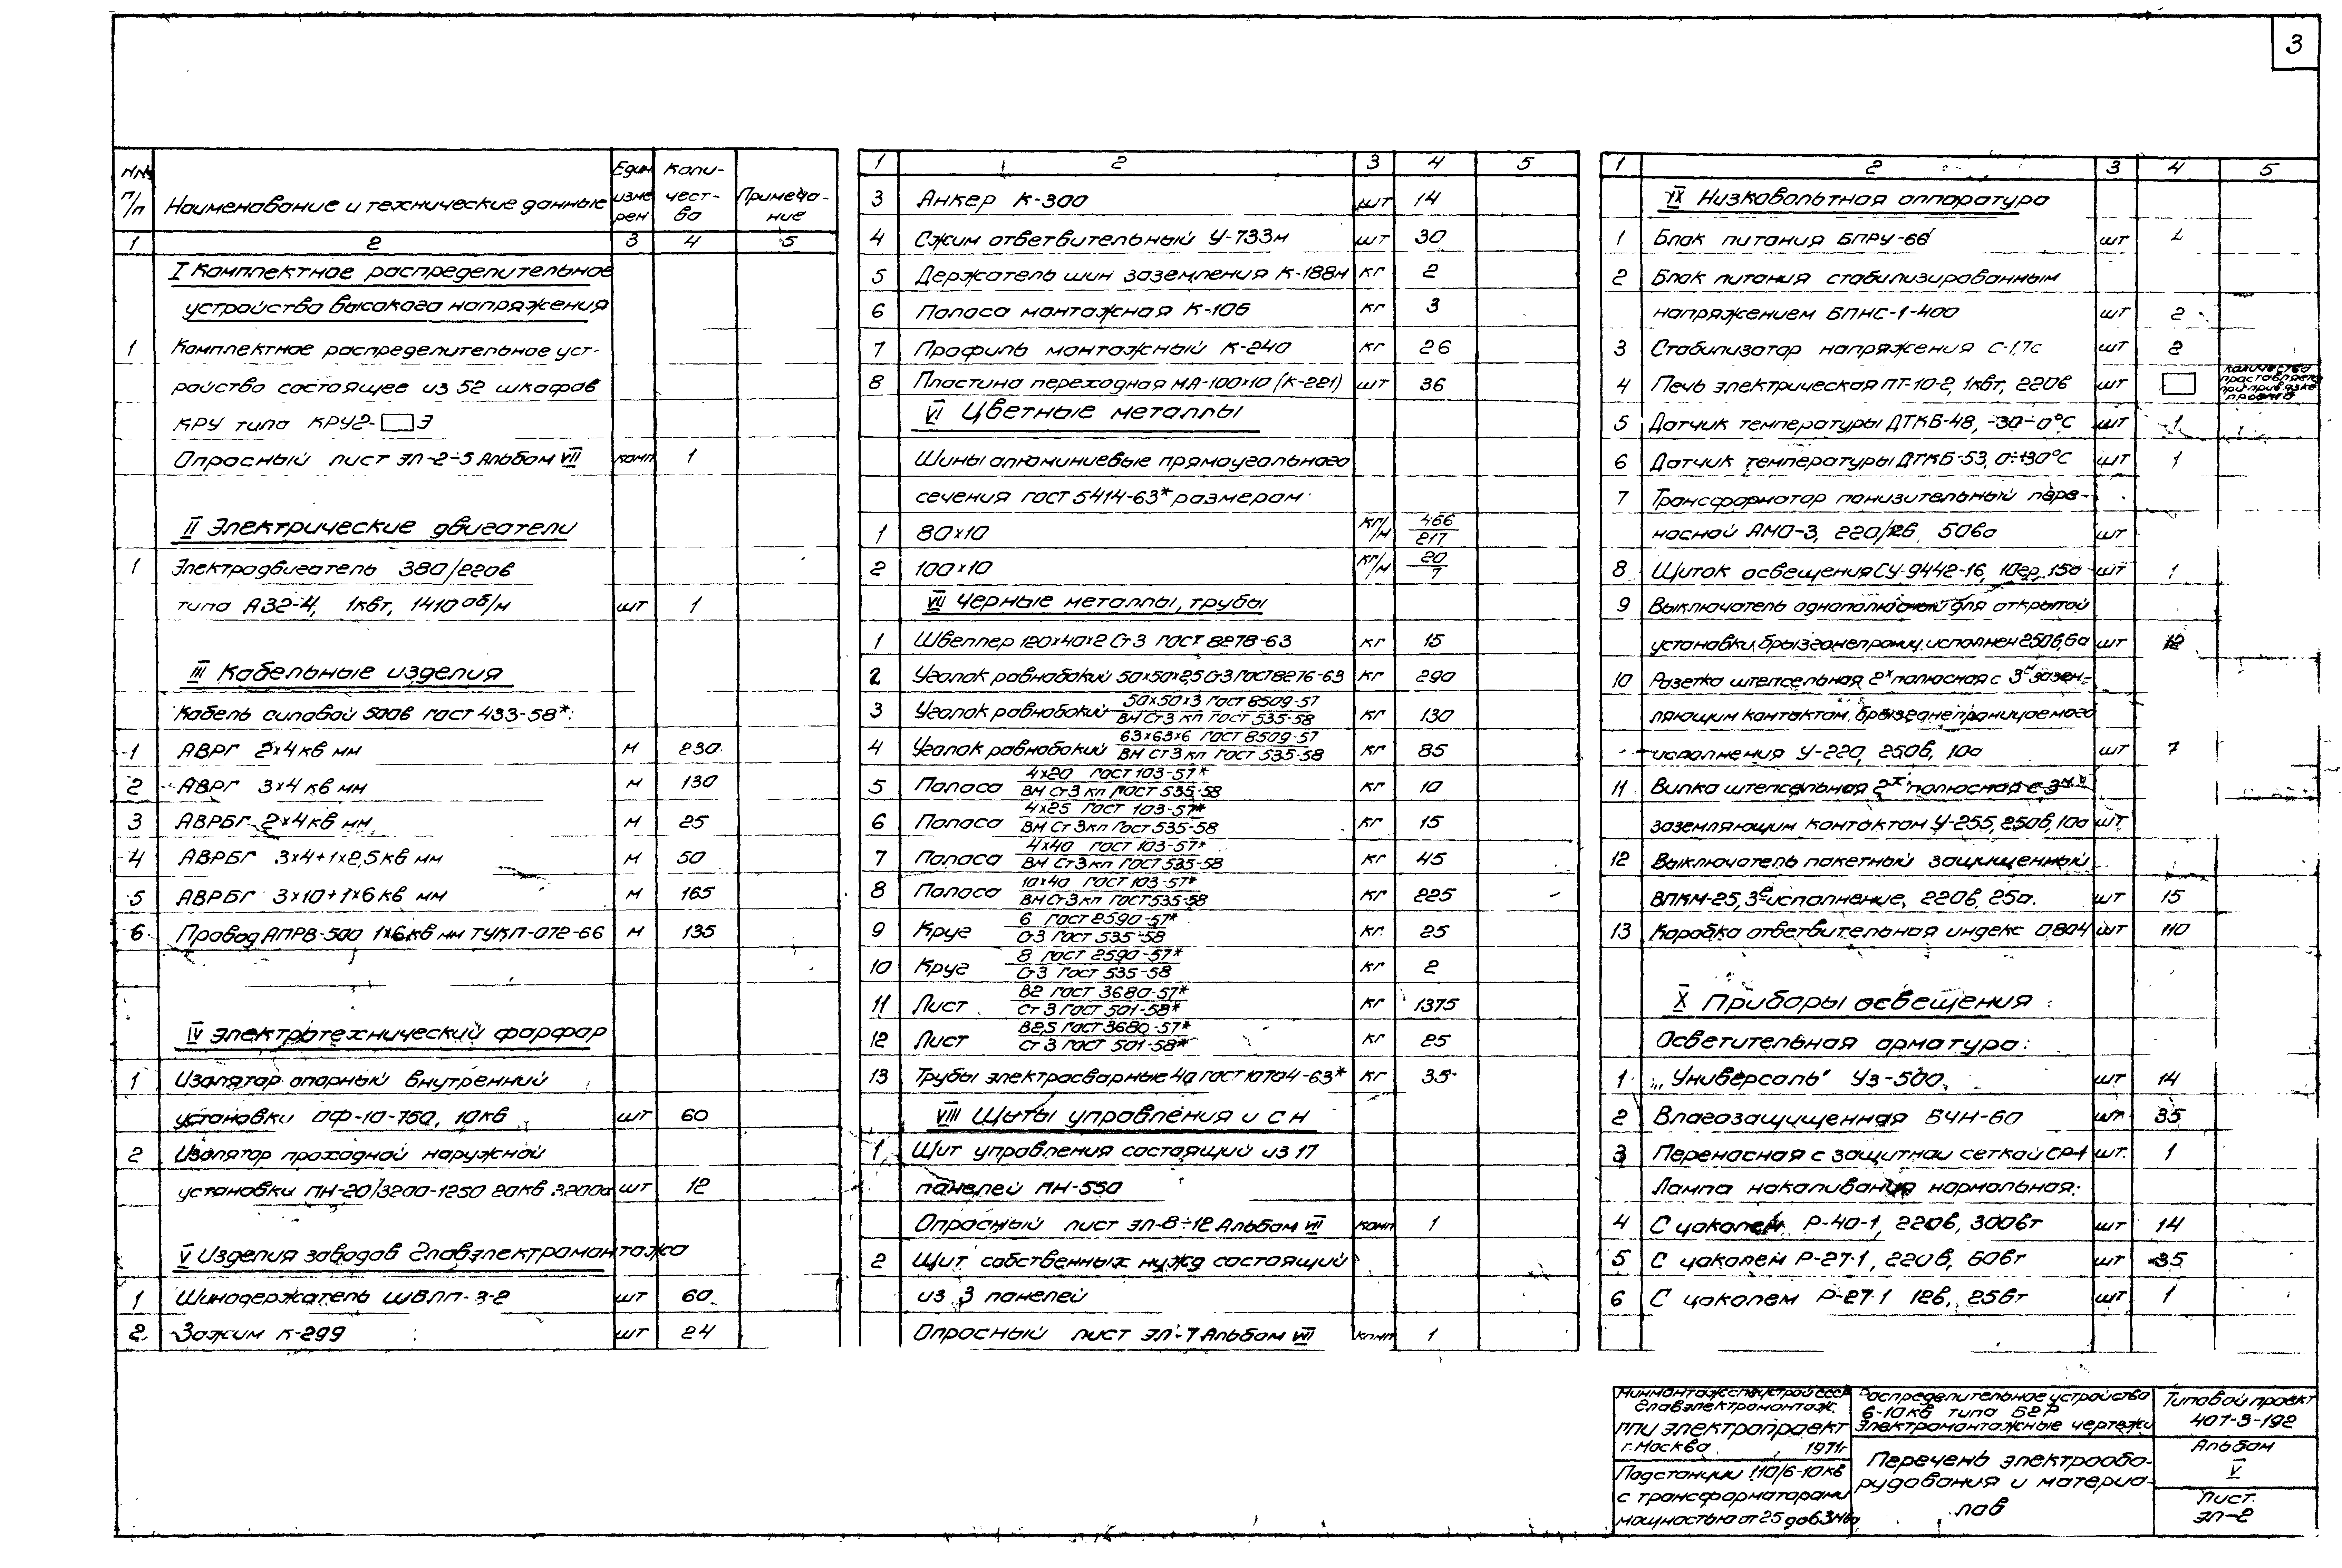 3
№№ п/п Наименование и технические данные Един. измерен Количество Примечание
1 2 3 4 5
I Комплектное распределительное
устройство высокого напряжения
1 Комплектное распределительное уст-
ройство состоящее из 52 шкафов
КРУ типа КРУ2-□Э
Опросный лист ЭЛ-2÷5 Альбом VII комп 1
II Электрические двигатели
1 Электродвигатель 380/220в
типа А32-4, 1квт, 1410 об/м шт 1
III Кабельные изделия
Кабель силовой 500в ГОСТ 433-58*:
1 АВРГ 2×4 кв мм м 230
2 АВРГ 3×4 кв мм м 130
3 АВРБГ 2×4 кв мм м 25
4 АВРБГ 3×4+1×2,5 кв мм м 50
5 АВРБГ 3×10+1×6 кв мм м 165
6 Провод АПРВ-500 1×6 кв мм ТУКП-072-66 м 135
IV Электротехнический фарфор
1 Изолятор опорный внутренний
установки ОФ-10-750, 10кв шт 60
2 Изолятор проходной наружной
установки ПН-20/3200-1250 20кв 3200а шт 12
V Изделия заводов Главэлектромонтажа
1 Шинодержатель ШВЛП-3-2 шт 60
2 Зажим К-299 шт 24
1 2 3 4 5
3 Анкер К-300 шт 14
4 Сжим ответвительный У-733м шт 30
5 Держатель шин заземления К-188м кг 2
6 Полоса монтажная К-106 кг 3
7 Профиль монтажный К-240 кг 26
8 Пластина переходная МА-100×10 (К-221) шт 36
VI Цветные металлы
Шины алюминиевые прямоугольного
сечения ГОСТ 5414-63* размером
1 80×10 кг/м 466/217
2 100×10 кг/м 20/7
VII Черные металлы, трубы
1 Швеллер 120×40×2 Ст3 ГОСТ 8278-63 кг 15
2 Уголок равнобокий 50×50×2,5 Ст3 ГОСТ 8276-63 кг 290
3 Уголок равнобокий 50×50×3 ГОСТ 8509-57 / ВМ Ст3 кп ГОСТ 535-58 кг 130
4 Уголок равнобокий 63×63×6 ГОСТ 8509-57 / ВМ Ст3 кп ГОСТ 535-58 кг 85
5 Полоса 4×20 ГОСТ 103-57* / ВМ Ст3 кп ГОСТ 535-58 кг 10
6 Полоса 4×25 ГОСТ 103-57* / ВМ Ст 3кп ГОСТ 535-58 кг 15
7 Полоса 4×40 ГОСТ 103-57* / ВМ Ст3 кп ГОСТ 535-58 кг 45
8 Полоса 10×40 ГОСТ 103-57* / ВМ Ст3 кп ГОСТ 535-58 кг 225
9 Круг 6 ГОСТ 2590-57* / Ст3 ГОСТ 535-58 кг 25
10 Круг 8 ГОСТ 2590-57* / Ст3 ГОСТ 535-58 кг 2
11 Лист В2 ГОСТ 3680-57* / Ст 3 ГОСТ 501-58* кг 1375
12 Лист В2,5 ГОСТ 3680-57* / Ст 3 ГОСТ 501-58* кг 25
13 Трубы электросварные 40 ГОСТ 10704-63* кг 35
VIII Щиты управления и с н
1 Щит управления состоящий из 17
панелей ПН-550
Опросный лист ЭЛ-8÷12 Альбом VII комп 1
2 Щит собственных нужд состоящий
из 3 панелей
Опросный лист ЭЛ-7 Альбом VII комп 1
1 2 3 4 5
IX Низковольтная аппаратура
1 Блок питания БПРУ-66 шт
2 Блок питания стабилизированным
напряжением БПНС-1-400 шт 2
3 Стабилизатор напряжения С-1,7с шт 2
4 Печь электрическая ПТ-10-2, 1квт, 220в шт □ количество проставляется при привязке проекта
5 Датчик температуры ДТКБ-48, -30÷0°С шт 1
6 Датчик температуры ДТКБ-53, 0÷+30°С шт 1
7 Трансформатор понизительный пере-
носной АМО-3, 220/12в, 50ва шт
8 Щиток освещения СУ-9442-16, 10гр, 15а шт 1
9 Выключатель однополюсный для открытой
установки, брызгонепрониц. исполнен 250в, 6а шт 12
10 Розетка штепсельная 2х полюсная с 3м зазем-
ляющим контактом, брызгонепроницаемого
исполнения У-220, 250в, 10а шт 7
11 Вилка штепсельная 2х полюсная с 3м
заземляющим контактом У-255, 250в, 10а шт
12 Выключатель пакетный защищенный
ВПКМ-25, 3е исполнение, 220в, 25а. шт 15
13 Коробка ответвительная индекс 0804 шт 110
X Приборы освещения
Осветительная арматура:
1 „Универсаль" Уз-500 шт 14
2 Влагозащищенная БЧН-60 шт 35
3 Переносная с защитной сеткой СР-1 шт. 1
Лампа накаливания нормальная:
4 С цоколем Р-40-1, 220в, 300вт шт 14
5 С цоколем Р-27-1, 220в, 60вт шт 35
6 С цоколем Р-27-1 12в, 25вт шт 1
Минмонтажспецстрой СССР
Главэлектромонтаж
ПТИ Электропроект
г. Москва 1971г
Подстанции 110/6-10кв
с трансформаторами
мощностью от 25 до 63 Мва
Распределительное устройство
6-10кв типа Б2Р
Электромонтажные чертежи
Перечень электрообо-
рудования и материа-
лов
Типовой проект
407-3-192
Альбом
V
Лист
ЭЛ-2